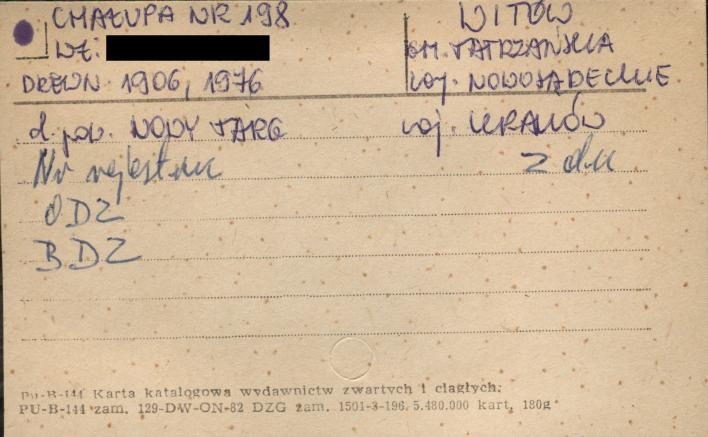 CHAŁUPA NR 198
WŁ:
DREWN 1906, 1976
WITÓW
GM. TATRZAŃSKA
WOJ. NOWOSĄDECKIE
d. pow. NOWY TARG woj. KRAKÓW
Nr rejestru z dn
ODZ
BDZ
PU-B-144 Karta katalogowa wydawnictw zwartych i ciągłych.
PU-B-144 zam. 129-DW-ON-82 DZG zam. 1501-3-196. 5.480.000 kart, 180g